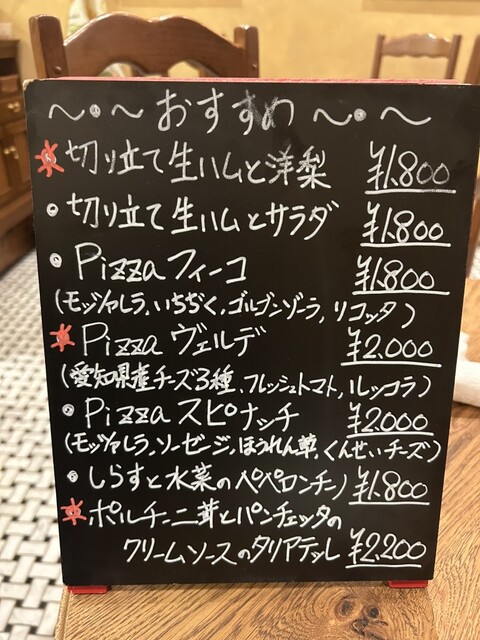 〜・〜おすすめ〜・〜
切り立て生ハムと洋梨 ¥1,800
・切り立て生ハムとサラダ ¥1,800
・Pizza フィーコ ¥1,800
(モッツァレラ,いちぢく,ゴルゴンゾーラ,リコッタ)
Pizza ヴェルデ ¥2,000
(愛知県産チーズ3種,フレッシュトマト,ルッコラ)
・Pizza スピナッチ ¥2,000
(モッツァレラ,ソーセージ,ほうれん草,くんせいチーズ)
・しらすと水菜のペペロンチーノ ¥1,800
ポルチーニ茸とパンチェッタの
クリームソースのタリアテッレ ¥2,200